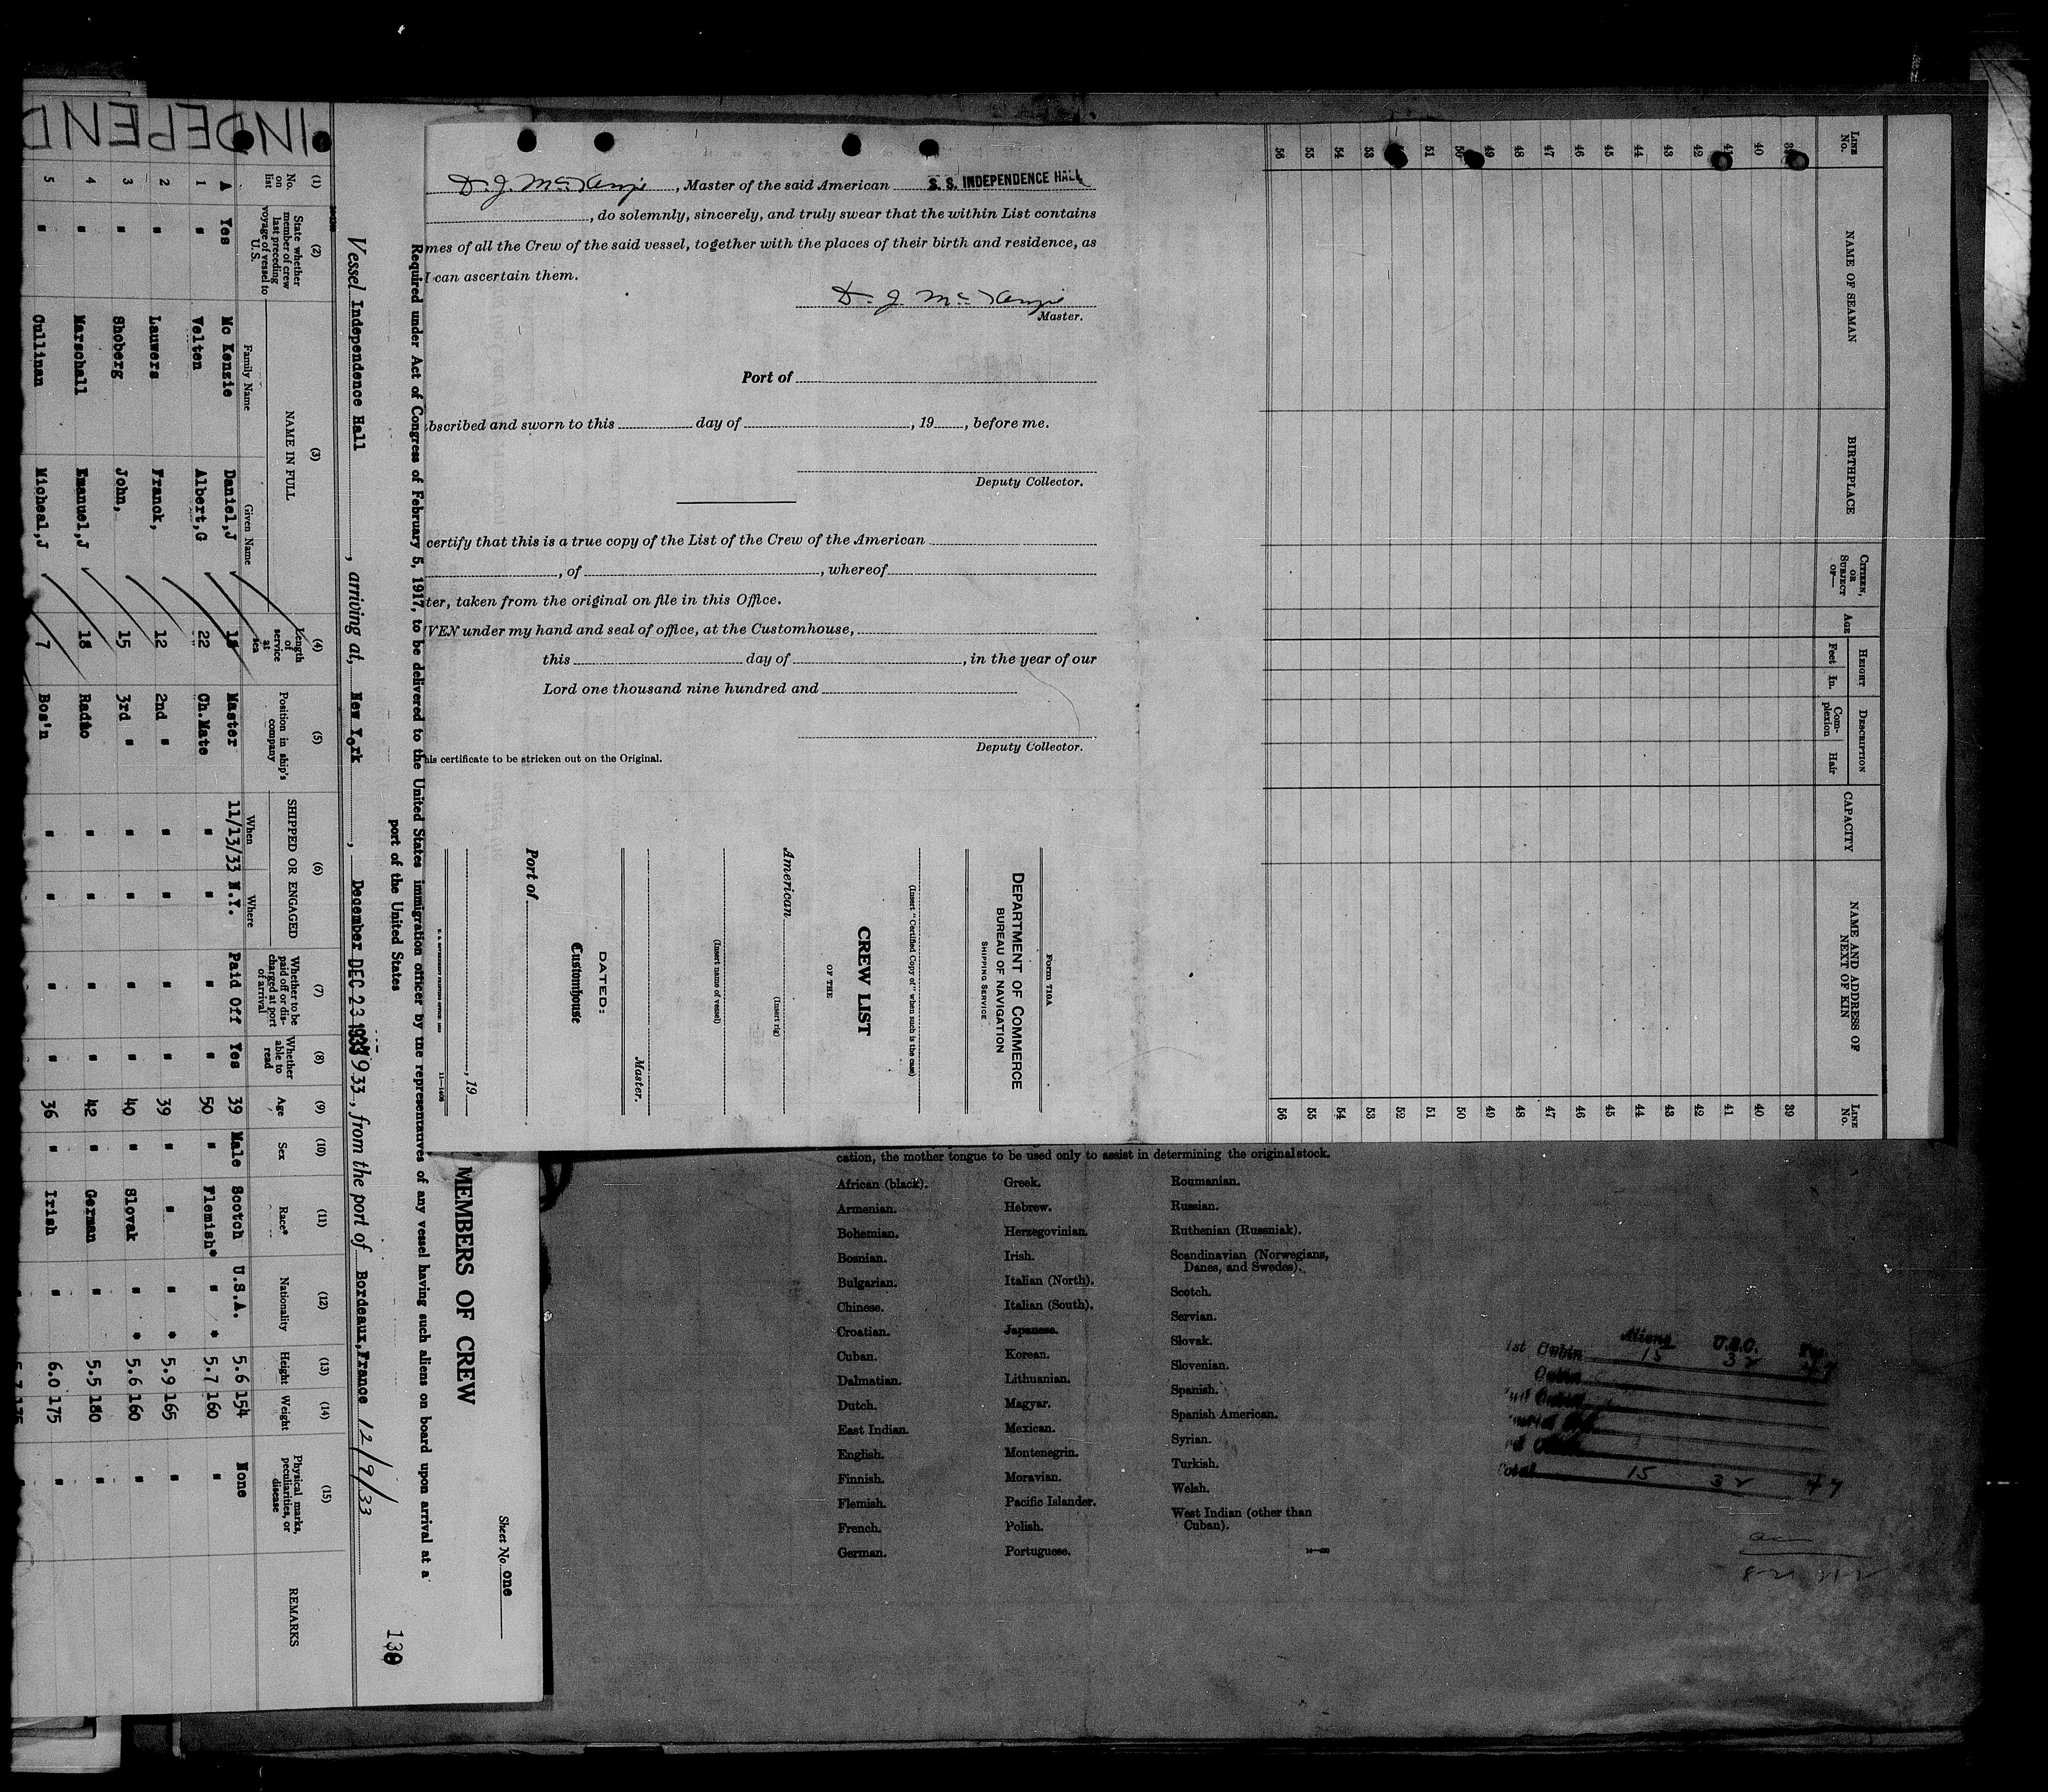 D. J. McKenzie, Master of the said American S. S. INDEPENDENCE HALL
, do solemnly, sincerely, and truly swear that the within List contains
mes of all the Crew of the said vessel, together with the places of their birth and residence, as
I can ascertain them.
D. J. McKenzie
Master.
Port of
bscribed and sworn to this day of , 19 , before me.
Deputy Collector.
certify that this is a true copy of the List of the Crew of the American
, of , whereof
ter, taken from the original on file in this Office.
VEN under my hand and seal of office, at the Customhouse,
this day of , in the year of our
Lord one thousand nine hundred and
Deputy Collector.
his certificate to be stricken out on the Original.
Form 710A
DEPARTMENT OF COMMERCE
BUREAU OF NAVIGATION
SHIPPING SERVICE
(Insert "Certified Copy of" when such is the case)
CREW LIST
OF THE
(Insert rig)
American
(Insert name of vessel)
Master.
DATED:
Customhouse
Port of
, 19
U. S. GOVERNMENT PRINTING OFFICE
LINE No. NAME OF SEAMAN BIRTHPLACE CITIZEN, OR SUBJECT OF— AGE HEIGHT Feet In. DESCRIPTION Com-plexion Hair CAPACITY NAME AND ADDRESS OF NEXT OF KIN LINE No.
39 39
40 40
41 41
42 42
43 43
44 44
45 45
46 46
47 47
48 48
49 49
50 50
51 51
52
53 53
54 54
55 55
56 56
Sheet No. one
MEMBERS OF CREW
Required under Act of Congress of February 5, 1917, to be delivered to the United States immigration officer by the representatives of any vessel having such aliens on board upon arrival at a
port of the United States
139
Vessel Independence Hall, arriving at, New York, December DEC 23 1933 933, from the port of Bordeaux, France 12/9/33
INDEPEND
(1) (2) (3) (4) (5) (6) (7) (8) (9) (10) (11) (12) (13) (14) (15)
No. on list State whether member of crew last preceding voyage of vessel to U.S. NAME IN FULL Family Name Given Name Length of service at sea Position in ship's company SHIPPED OR ENGAGED When Where Whether to be paid off or dis-charged at port of arrival Whether able to read Age Sex Race* Nationality Height Weight Physical marks, peculiarities, or disease REMARKS
A Yes Mc Kenzie Daniel,J 18 Master 11/13/33 N.Y. Paid Off Yes 39 Male Scotch U.S.A. 5.6 154 None
1 " Velten Albert,G 22 Ch.Mate " " " " 50 " Flemish* " * 5.7 160 "
2 " Lauwers Franck, 12 2nd " " " " " 39 " " " * 5.9 165 "
3 " Shoberg John, 15 3rd " " " " " 40 " Slovak " * 5.6 160 "
4 " Marschall Emanuel,J 18 Radio " " " " 42 " German " 5.5 180 "
5 " Cullinan Micheal,J 7 Bos'n " " " " 36 " Irish " 6.0 175 "
cation, the mother tongue to be used only to assist in determining the original stock.
African (black). Greek. Roumanian.
Armenian. Hebrew. Russian.
Bohemian. Herzegovinian. Ruthenian (Russniak).
Bosnian. Irish. Scandinavian (Norwegians, Danes, and Swedes).
Bulgarian. Italian (North). Scotch.
Chinese. Italian (South). Servian.
Croatian. Japanese. Slovak.
Cuban. Korean. Slovenian.
Dalmatian. Lithuanian. Spanish.
Dutch. Magyar. Spanish American.
East Indian. Mexican. Syrian.
English. Montenegrin. Turkish.
Finnish. Moravian. Welsh.
Flemish. Pacific Islander. West Indian (other than Cuban).
French. Polish.
German. Portuguese.
Aliens U.S.C.
1st Cabin 15 32 47
Total 15 32 47